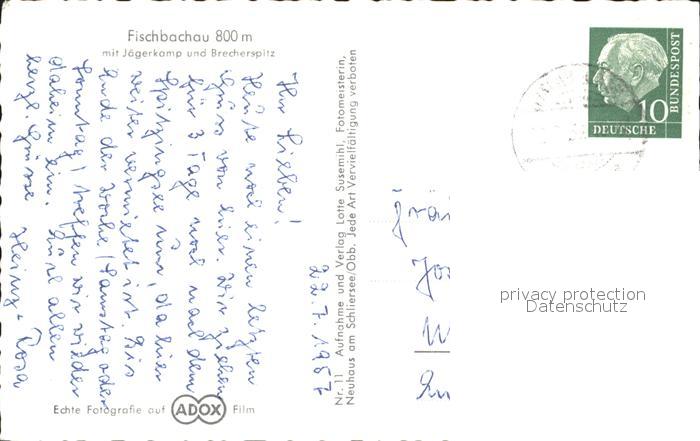 Fischbachau 800 m
mit Jägerkamp und Brecherspitz
22.7.1957
Ihr Lieben!
Heute noch einen letzten
Gruss von hier. Wir ziehen
für 3 Tage noch nach dem
Spitzingsee um, da hier
weiter vermietet ist. Bis
Ende der Woche (Samstag oder
Sonntag) treffen wir wieder
daheim ein. Euch allen
herzl. Grüsse Heinz + Rosa
Nr. 11 Aufnahme und Verlag Lotte Susemihl, Fotomeisterin,
Neuhaus am Schliersee/Obb. Jede Art Vervielfältigung verboten
Echte Fotografie auf ADOX Film
DEUTSCHE
BUNDESPOST
10
privacy protection
Datenschutz